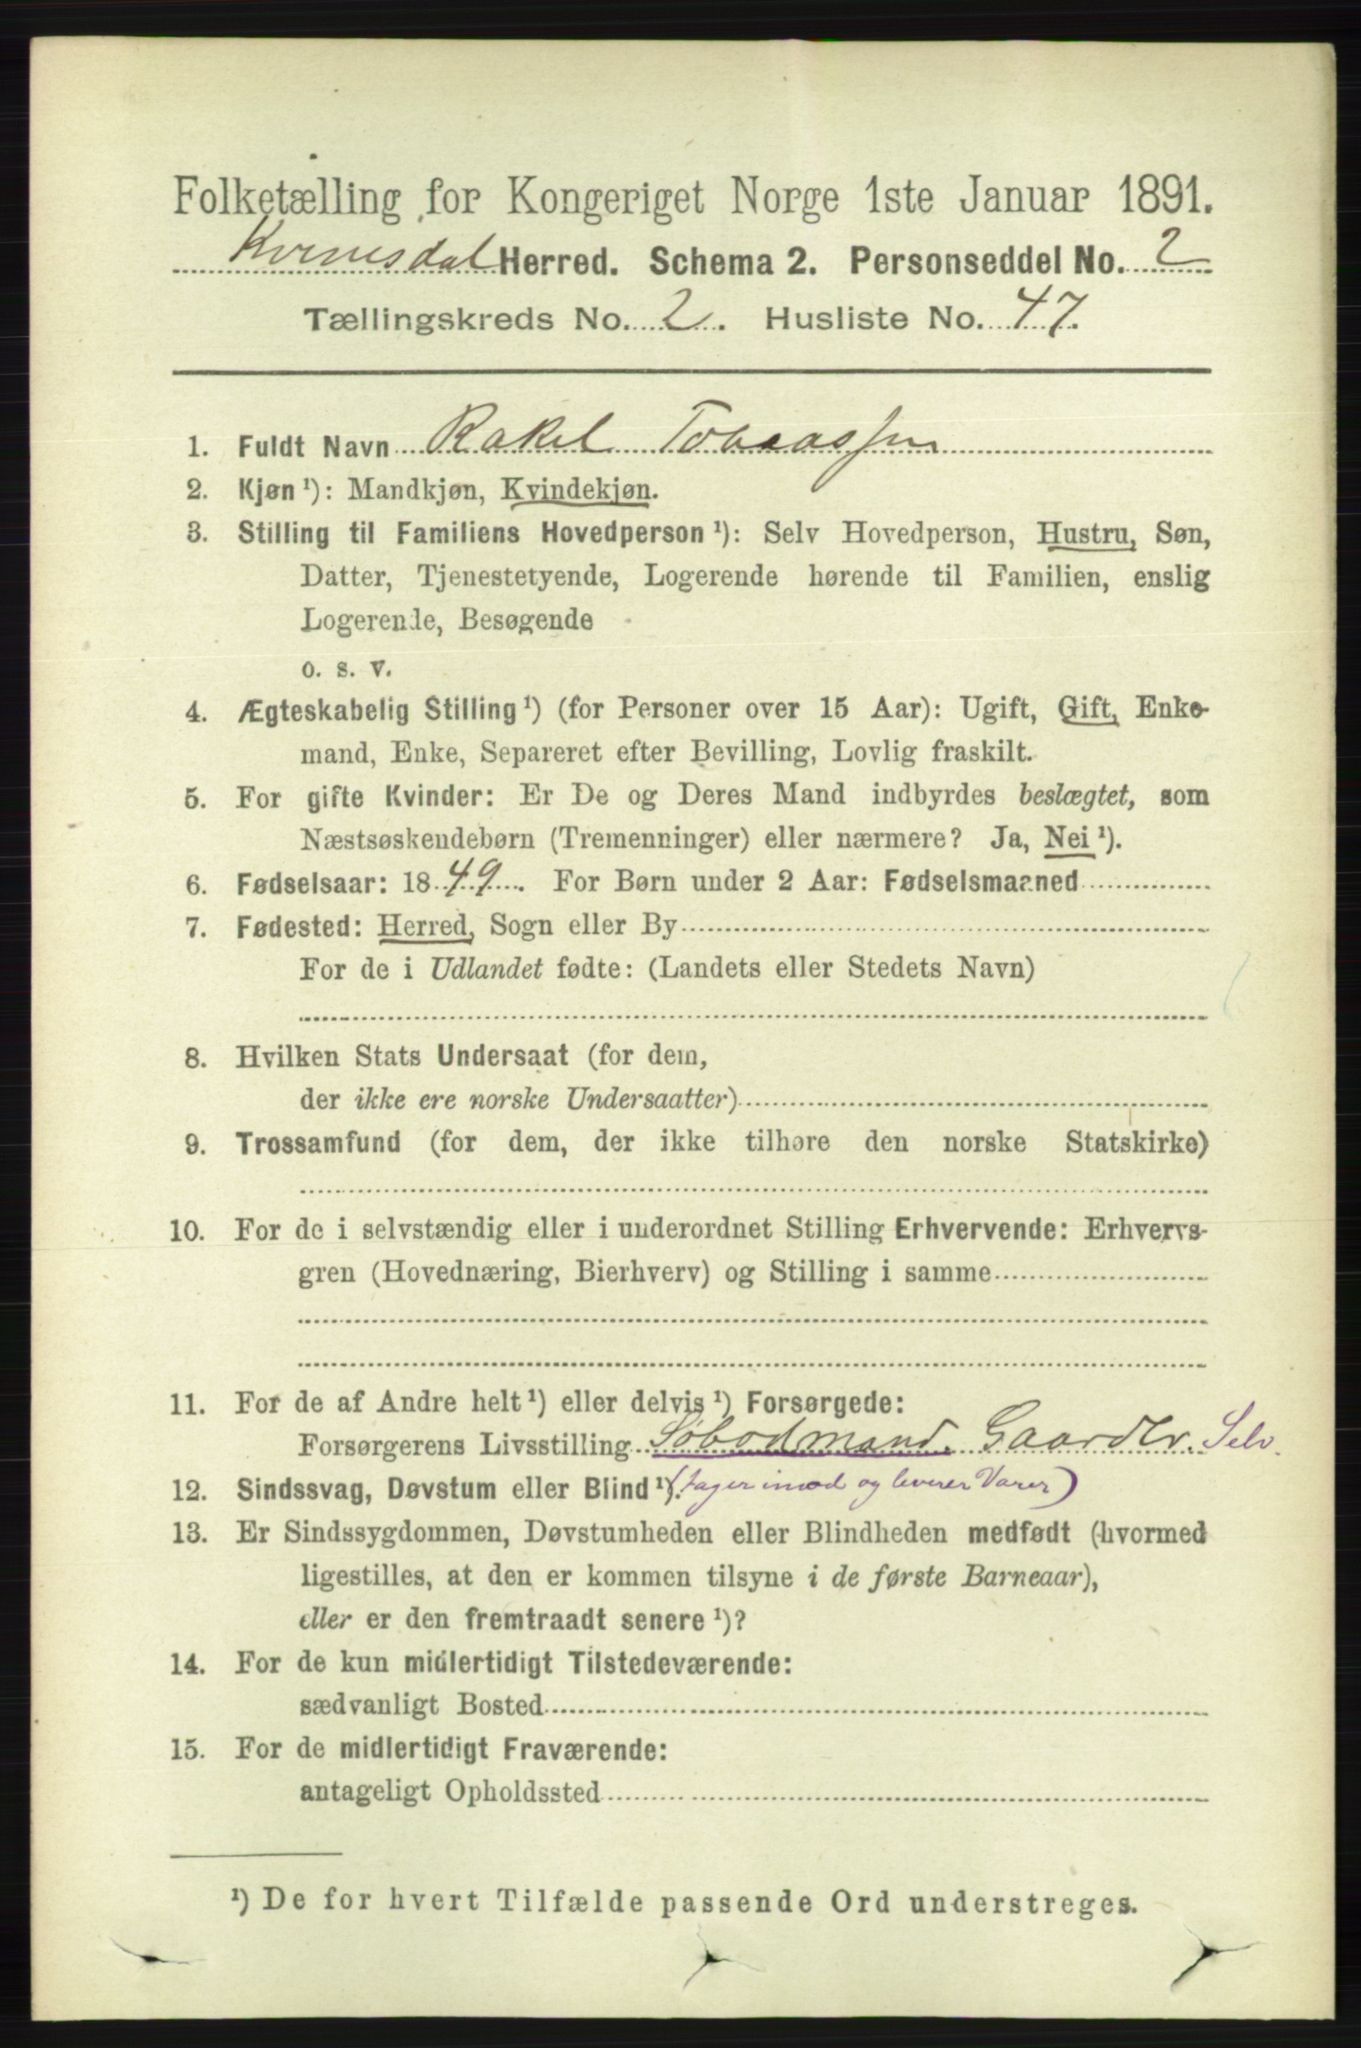 Folketælling for Kongeriget Norge 1ste Januar 1891.
Kvinesdal Herred. Schema 2. Personseddel No. 2
Tællingskreds No. 2. Husliste No. 47.
1. Fuldt Navn Rakel Tobiassen
2. Kjøn ¹): Mandkjøn, Kvindekjøn.
3. Stilling til Familiens Hovedperson ¹): Selv Hovedperson, Hustru, Søn,
Datter, Tjenestetyende, Logerende hørende til Familien, enslig
Logerende, Besøgende
o. s. v.
4. Ægteskabelig Stilling ¹) (for Personer over 15 Aar): Ugift, Gift, Enke-
mand, Enke, Separeret efter Bevilling, Lovlig fraskilt.
5. For gifte Kvinder: Er De og Deres Mand indbyrdes beslægtet, som
Næstsøskendebørn (Tremenninger) eller nærmere? Ja, Nei ¹).
6. Fødselsaar: 1849. For Børn under 2 Aar: Fødselsmaaned
7. Fødested: Herred, Sogn eller By
For de i Udlandet fødte: (Landets eller Stedets Navn)
8. Hvilken Stats Undersaat (for dem,
der ikke ere norske Undersaatter)
9. Trossamfund (for dem, der ikke tilhøre den norske Statskirke)
10. For de i selvstændig eller i underordnet Stilling Erhvervende: Erhvervs-
gren (Hovednæring, Bierhverv) og Stilling i samme
11. For de af Andre helt ¹) eller delvis ¹) Forsørgede:
Forsørgerens Livsstilling Søbodmand. Gaardbr. Selv.
12. Sindssvag, Døvstum eller Blind ¹). (tager imod og leverer Varer)
13. Er Sindssygdommen, Døvstumheden eller Blindheden medfødt (hvormed
ligestilles, at den er kommen tilsyne i de første Barneaar),
eller er den fremtraadt senere ¹)?
14. For de kun midlertidigt Tilstedeværende:
sædvanligt Bosted
15. For de midlertidigt Fraværende:
antageligt Opholdssted
¹) De for hvert Tilfælde passende Ord understreges.